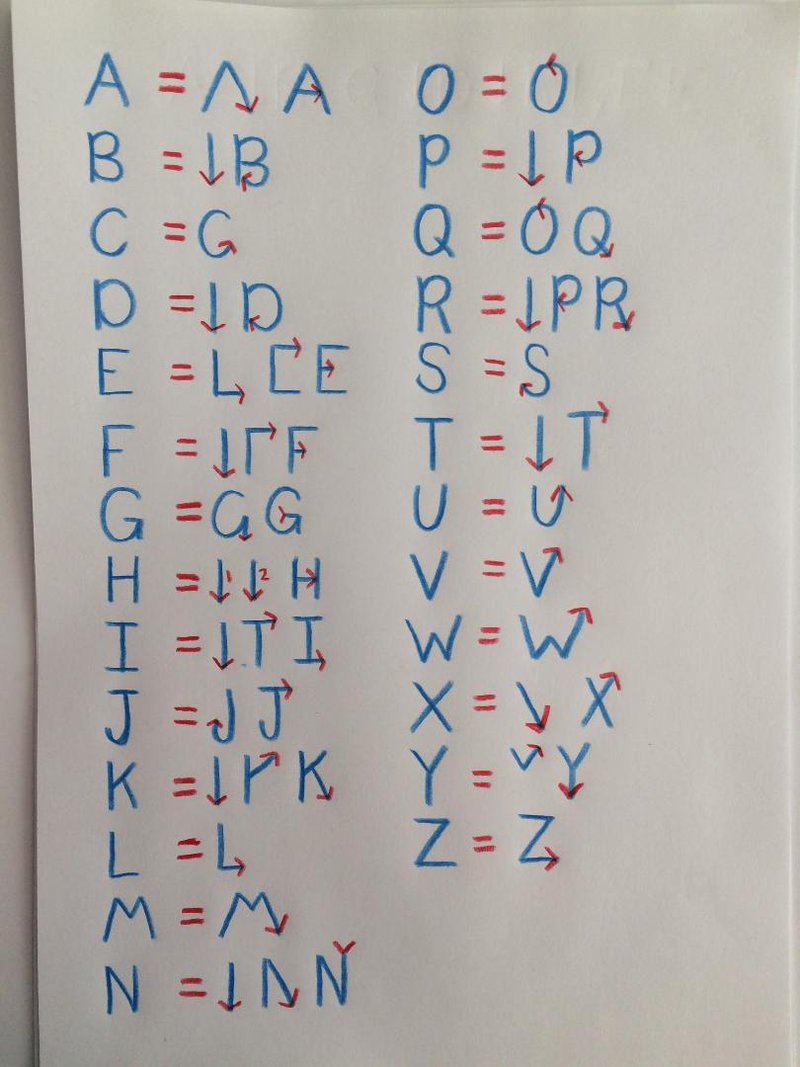 A = Λ A
B = ↓ B
C = C
D = ↓ D
E = L C E
F = ↓ Γ F
G = G G
H = ↓1 ↓2 H
I = ↓ T I
J = J J
K = ↓ K K
L = L
M = M
N = ↓ N N
O = O
P = ↓ P
Q = O Q
R = ↓ P R
S = S
T = ↓ T
U = U
V = V
W = W
X = ↘ X
Y = v Y
Z = Z